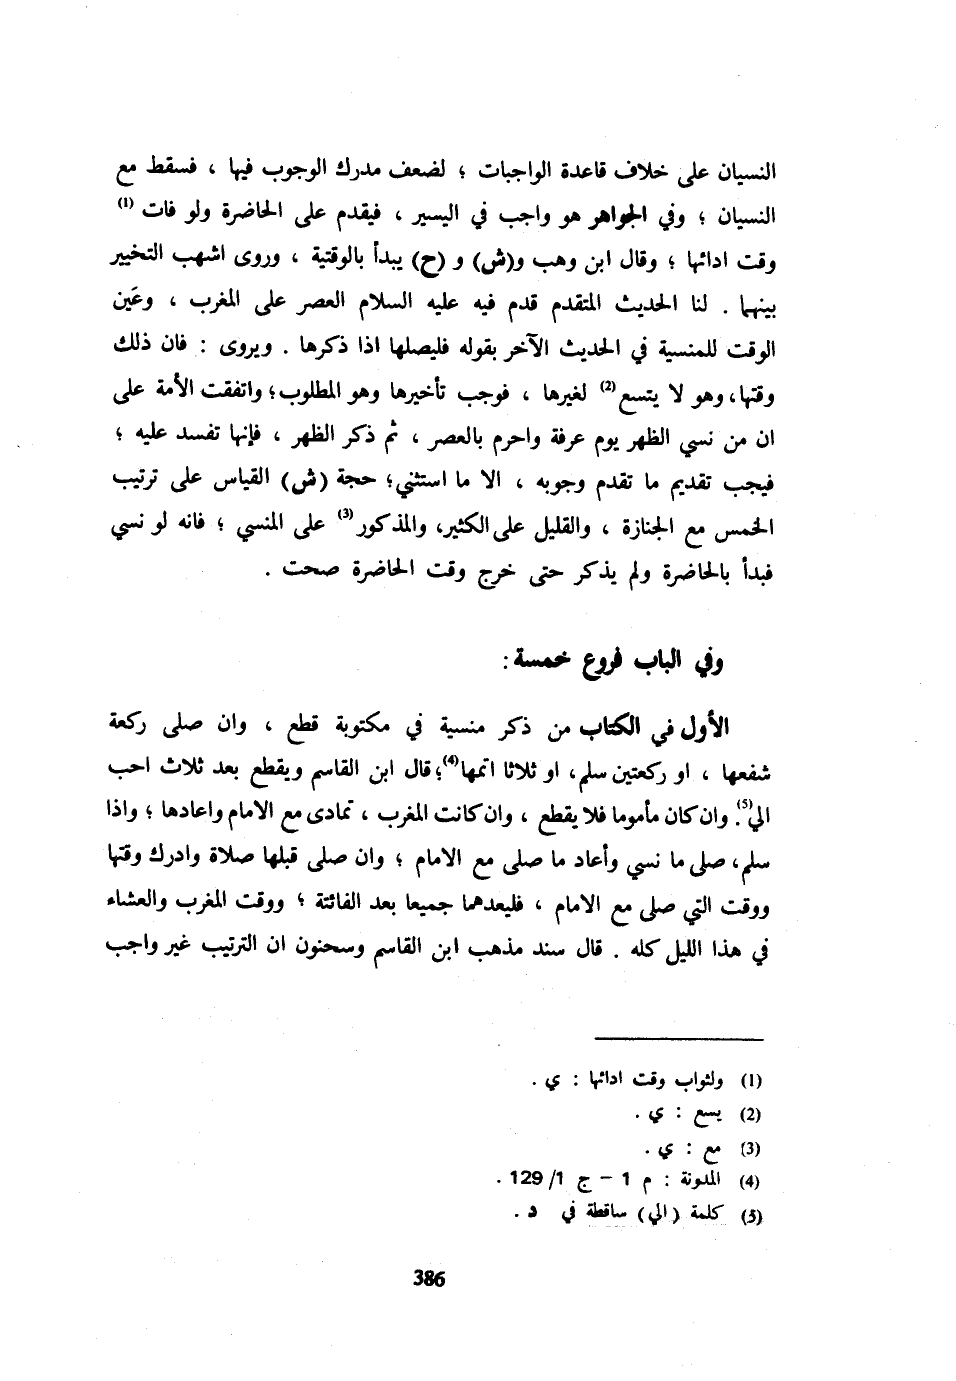 النسيان على خلاف قاعدة الواجبات ؛ لضعف مدرك الوجوب فيها ، فسقط مع
النسيان ؛ وفي الجواهر هو واجب في اليسير ، فيقدم على الحاضرة ولو فات (1)
وقت ادائها ؛ وقال ابن وهب و(ش) و (ح) يبدأ بالوقتية ، وروى اشهب التخيير
بينهما . لنا الحديث المتقدم قدم فيه عليه السلام العصر على المغرب ، وعَين
الوقت للمنسية في الحديث الآخر بقوله فليصلها اذا ذكرها . ويروى : فان ذلك
وقتها، وهو لا يتسع (2) لغيرها ، فوجب تأخيرها وهو المطلوب؛ واتفقت الأمة على
ان من نسي الظهر يوم عرفة واحرم بالعصر ، ثم ذكر الظهر ، فإنها تفسد عليه ؛
فيجب تقديم ما تقدم وجوبه ، الا ما استثني؛ حجة (ش) القياس على ترتيب
الخمس مع الجنازة ، والقليل على الكثير، والمذكور (3) على المنسي ؛ فانه لو نسي
فبدأ بالحاضرة ولم يذكر حتى خرج وقت الحاضرة صحت .
وفي الباب فروع خمسة :
الأول في الكتاب من ذكر منسية في مكتوبة قطع ، وان صلى ركعة
شفعها ، او ركعتين سلم، او ثلاثا اتمها (4)؛ قال ابن القاسم ويقطع بعد ثلاث احب
الي (5). وان كان مأموما فلا يقطع ، وان كانت المغرب ، تمادى مع الامام واعادها ؛ واذا
سلم، صلى ما نسي وأعاد ما صلى مع الامام ؛ وان صلى قبلها صلاة وادرك وقتها
ووقت التي صلى مع الامام ، فليعدهما جميعا بعد الفائتة ؛ ووقت المغرب والعشاء
في هذا الليل كله . قال سند مذهب ابن القاسم وسحنون ان الترتيب غير واجب
(1) ولثواب وقت ادائها : ي .
(2) يسع : ي .
(3) مع : ي .
(4) المدونة : م 1 – ج 1/ 129 .
(5) كلمة (الي) ساقطة في د .
386